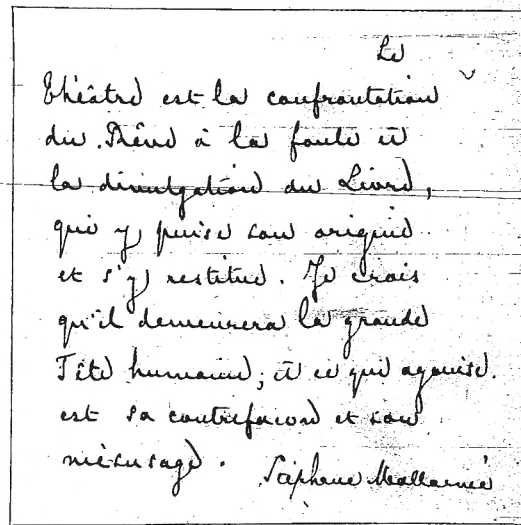 Le
Théâtre est la confrontation
du Rêve à la foule et
la divulgation du Livre,
qui y puise son origine
et s'y restitue. Je crois
qu'il demeurera la grande
Fête humaine; et ce qui agonise
est sa contrefaçon et son
mésusage. Stéphane Mallarmé